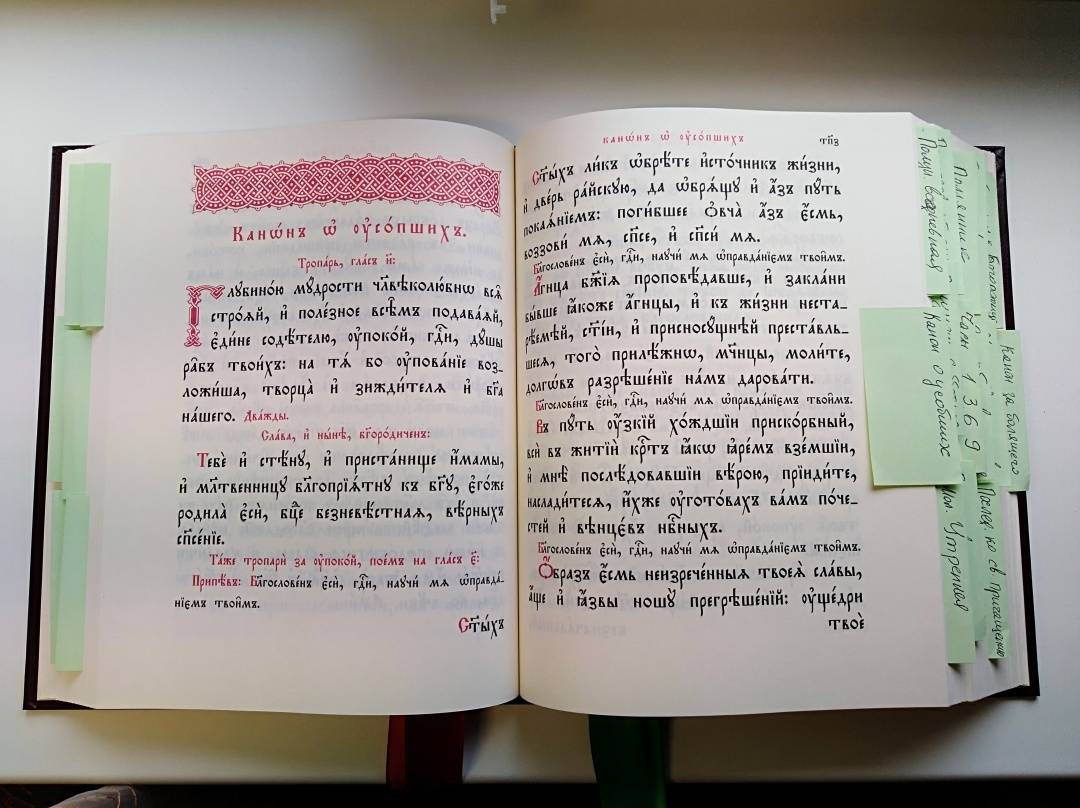 Канѡ́нъ ѡ҆ ᲂу҆со́пшихъ.
Тропа́рь, гла́съ и҃:
Глꙋбино́ю мꙋ́дрости чл҃вѣколю́бнѡ всѧ̑
стро́ѧй, и҆ поле́зное всѣ̑мъ подава́ѧй,
є҆ди́не содѣ́телю, ᲂу҆поко́й, гдⷭ҇и, дꙋ́шы
ра̑бъ твои́хъ: на тѧ́ бо ᲂу҆пова́нїе воз-
ложи́ша, творца̀ и҆ зижди́телѧ и҆ бг҃а
на́шего. Два́жды.
Сла́ва, и҆ ны́нѣ, бг҃оро́диченъ:
Тебѐ и҆ стѣ́нꙋ, и҆ приста́нище и҆́мамы,
и҆ мл҃твенницꙋ бл҃гопрїѧ́тнꙋ къ бг҃ꙋ, є҆го́же
родила̀ є҆сѝ, бцⷣе безневѣ́стнаѧ, вѣ́рныхъ
сп҃се́нїе.
Та́же тропарѝ за ᲂу҆поко́й, пое́мъ на гла́съ є҃:
Припѣ́въ: Блгⷭ҇ове́нъ є҆сѝ, гдⷭ҇и, наꙋчи́ мѧ ѡ҆правда́-
нїємъ твои̑мъ.
Ст҃ы́хъ
канѡ́нъ ѡ҆ ᲂу҆со́пшихъ
тп҃з
Ст҃ы́хъ ли́къ ѡ҆брѣ́те и҆сто́чникъ жи́зни,
и҆ две́рь ра́йскꙋю, да ѡ҆брѧ́щꙋ и҆ а҆́зъ пꙋ́ть
покаѧ́нїемъ: поги́бшее ѻ҆вча̀ а҆́зъ є҆́смь,
воззови́ мѧ, сп҃се, и҆ сп҃си́ мѧ.
Бл҃гослове́нъ є҆сѝ, гдⷭ҇и, наꙋчи́ мѧ ѡ҆правда́нїємъ твои̑мъ.
А҆́гнца бж҃їѧ проповѣ́давше, и҆ закла́ни
бы́вше ꙗ҆́коже а҆́гнцы, и҆ къ жи́зни неста-
рѣ́емѣй, ст҃і́и, и҆ присносꙋ́щнѣй преста́вль-
шесѧ, того̀ прилѣ́жнѡ, мч҃нцы, моли́те,
долгѡ́въ разрѣше́нїе на́мъ дарова́ти.
Бл҃гослове́нъ є҆сѝ, гдⷭ҇и, наꙋчи́ мѧ ѡ҆правда́нїємъ твои̑мъ.
Въ пꙋ́ть ᲂу҆́зкїй хо́ждшїи приско́рбный,
всѝ въ житїѝ крⷭ҇тъ ꙗ҆́кѡ ꙗ҆ре́мъ взе́мшїи,
и҆ мнѣ̀ послѣ́довавшїи вѣ́рою, прїиди́те,
наслади́тесѧ, и҆́хже ᲂу҆гото́вахъ ва́мъ по́че-
стей и҆ вѣнцє́въ нбⷭ҇ныхъ.
Бл҃гослове́нъ є҆сѝ, гдⷭ҇и, наꙋчи́ мѧ ѡ҆правда́нїємъ твои̑мъ.
Ѻ҆́бразъ є҆́смь неизрече́нныѧ твоеѧ̀ сла́вы,
а҆́ще и҆ ꙗ҆́звы ношꙋ̀ прегрѣше́нїй: ᲂу҆ще́дри
твоѐ
Полунощница вседневная
Помянник
Часы 1 3 6 9
Канон о усопших
Мол. Утренняя
Канон за болящего
Послед. ко св причащению